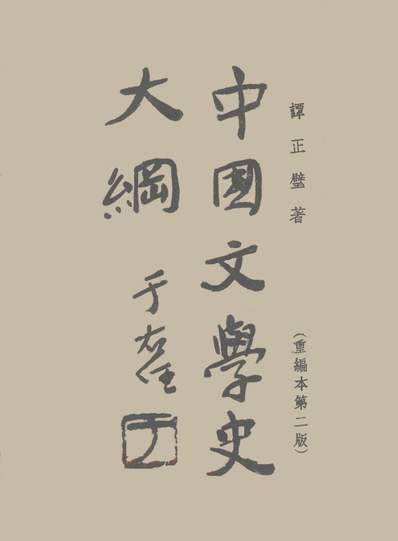 譚正璧著
(重編本第二版)
中國文學史
大綱
于右任
于